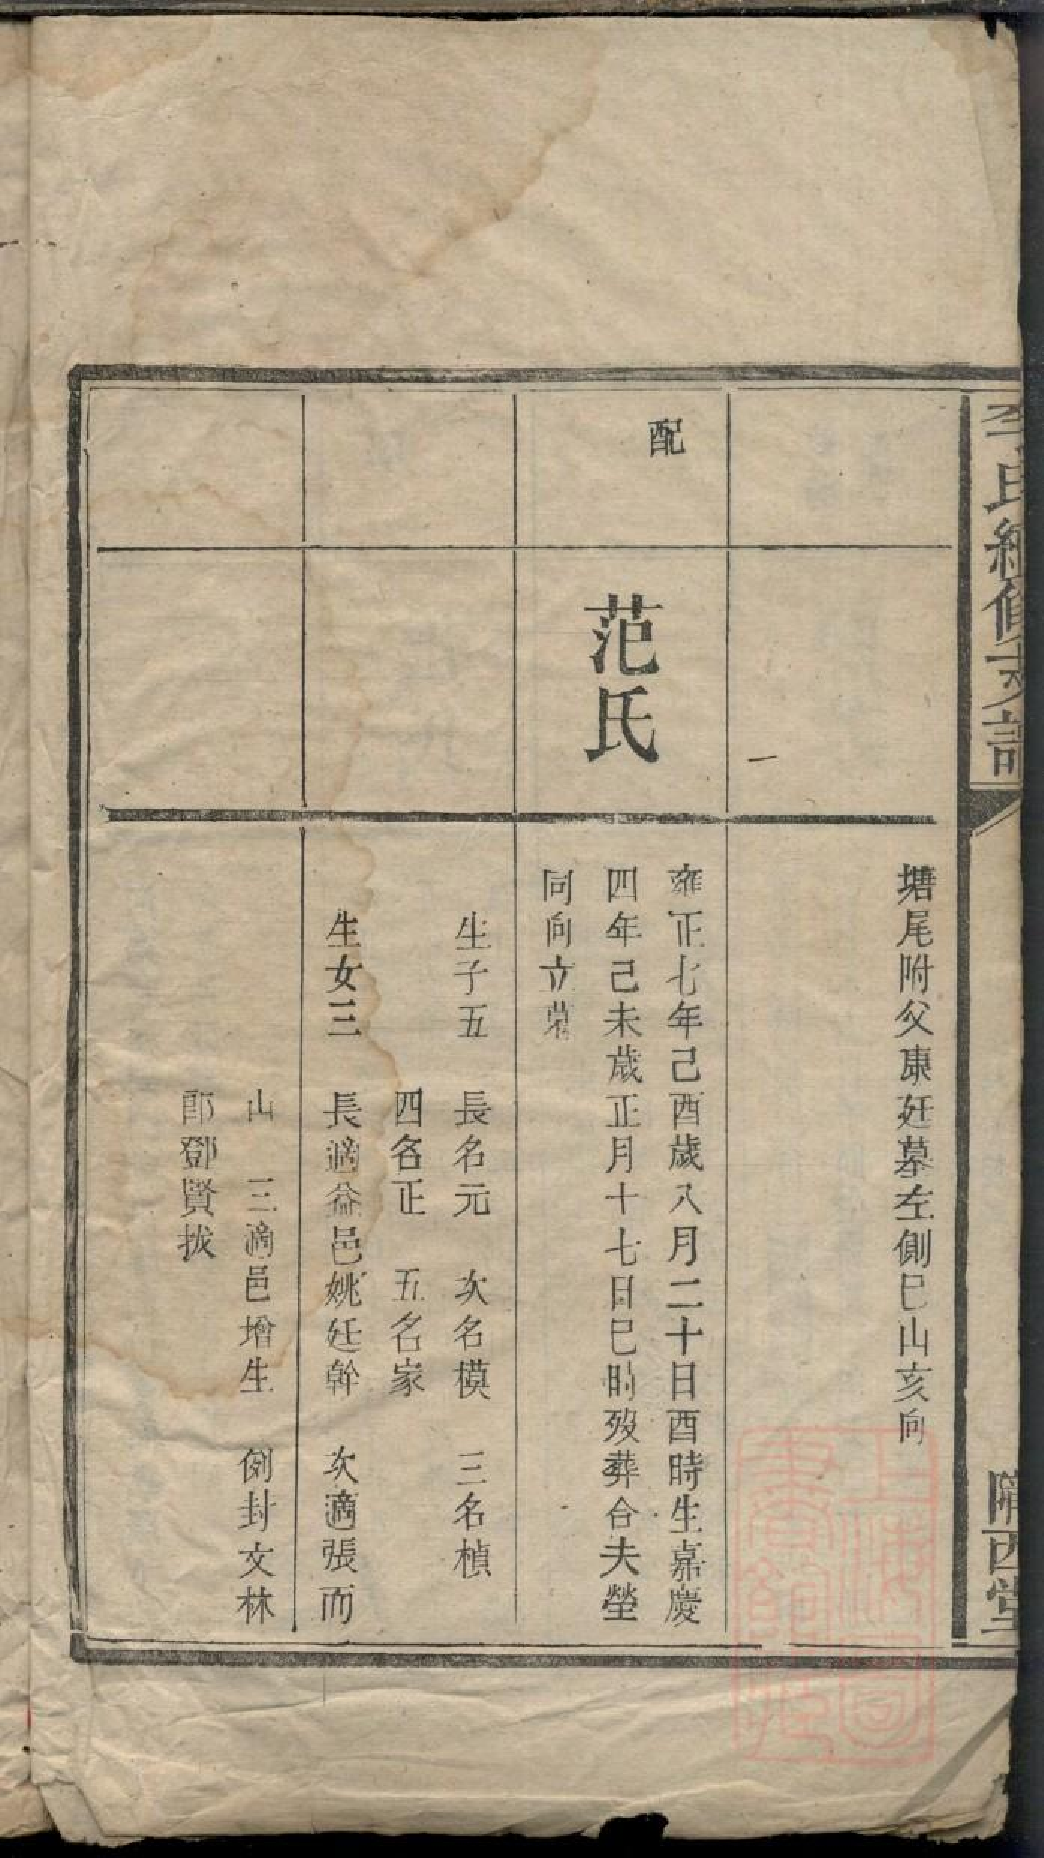 李氏續修支譜
隴西堂
塘尾附父康廷墓左側巳山亥向
配
范氏
雍正七年己酉歲八月二十日酉時生嘉慶
四年己未歲正月十七日巳時歿葬合夫塋
同向立碑
生子五 長名元 次名模 三名楨
四名正 五名家
生女三 長適益邑姚廷幹 次適張而
山 三適邑增生 例封文林
郎鄧賢拔
上海圖書館藏